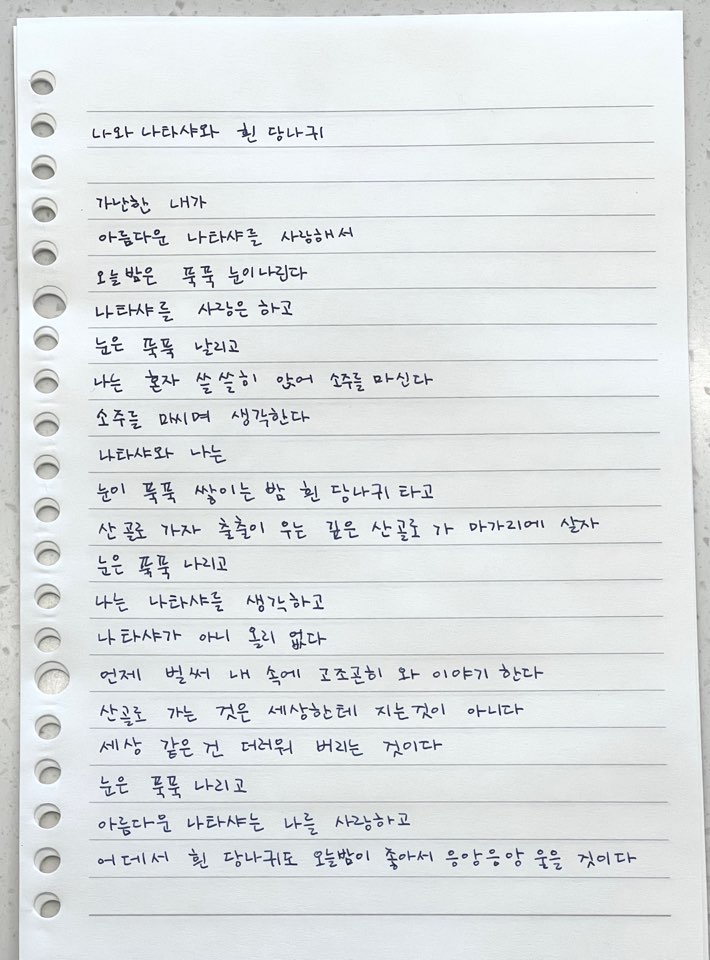 나와 나타샤와 흰 당나귀
가난한 내가
아름다운 나타샤를 사랑해서
오늘밤은 푹푹 눈이나린다
나타샤를 사랑은 하고
눈은 푹푹 날리고
나는 혼자 쓸쓸히 앉어 소주를 마신다
소주를 마시며 생각한다
나타샤와 나는
눈이 푹푹 쌓이는 밤 흰 당나귀 타고
산골로 가자 출출이 우는 깊은 산골로 가 마가리에 살자
눈은 푹푹 나리고
나는 나타샤를 생각하고
나타샤가 아니 올리 없다
언제 벌써 내 속에 고조곤히 와 이야기 한다
산골로 가는 것은 세상한테 지는것이 아니다
세상 같은건 더러워 버리는 것이다
눈은 푹푹 나리고
아름다운 나타샤는 나를 사랑하고
어데서 흰 당나귀도 오늘밤이 좋아서 응앙응앙 울을 것이다